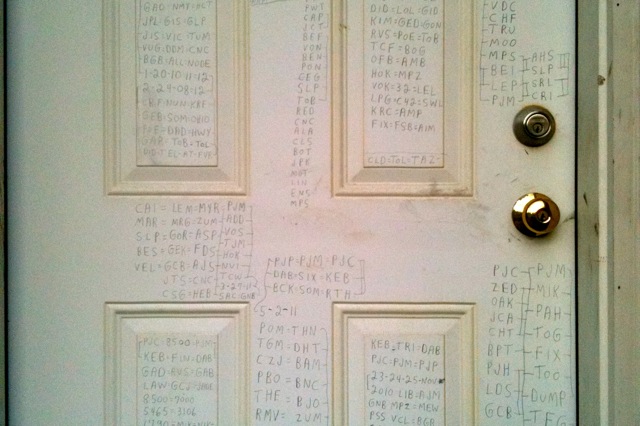 GAD=NMP=OLT
JPL=GIS=GLP
JIS=VIC=TUM
VUG=DDM=CNC
BGB=ALL=NODE
1-20-10:11-12
2-24-08-12
GEB=SOM=OVID
FOB=DAD=HWY
GAR=TOB=TOL
DID=TEL=AT=FYR
FWT
CAP
JCT
BEF
VON
BEN
PON
CEG
SLP
TOB
RED
CNC
ALA
CLS
BOT
JPR
MOT
LIN
ENS
MPS
DID=LOL=GID
KIM=GED=GON
RVS=POE=TOB
TCF=BOG
OFB=AMB
HOK=MPZ
VOK=32=LEL
LPG=C42=SWL
KRC=AMP
FIX=FSB=AIM
CLD=TOL=TAZ
VDC
CHF
TRU
MOO
MPS
BEI
LEP
PJM
AHS
SLP
SRL
CRI
CAI=LEM=MYR
MAR=MRG=ZUM
SLP=GOR=ASP
BES=GEK=FDS
VEL=GCB=AJS
JTS=CNC
CSG=HEB
PJM
ADD
VOS
TJM
HOK
NVI
TCW
3-29-11
SRC=GNB
PJP=PJM=PJC
DAB=SIX=KEB
BCK=SOM=RTH
5-2-11
POM=THN
TGM=DHT
CZJ=BAM
PBO=BNC
THF=BJO
RMV=ZUM
PJC=8500=PJM
KEB=FIN=DAB
GAD=RUS=GAB
LAW=GCJ
8500=7000
5465=3106
KEB=TRI=DAB
PJC=PJM=PJP
23-24-25-NOV
2010 LIB=AJM
GNB MPZ=MEW
PSS VCL=BGB
PJC
ZED
OAK
JCA
CHT
BPT
PJH
LDS
GCB
PJM
MIK
PAH
TOG
FIX
TOO
DUMP
TFG